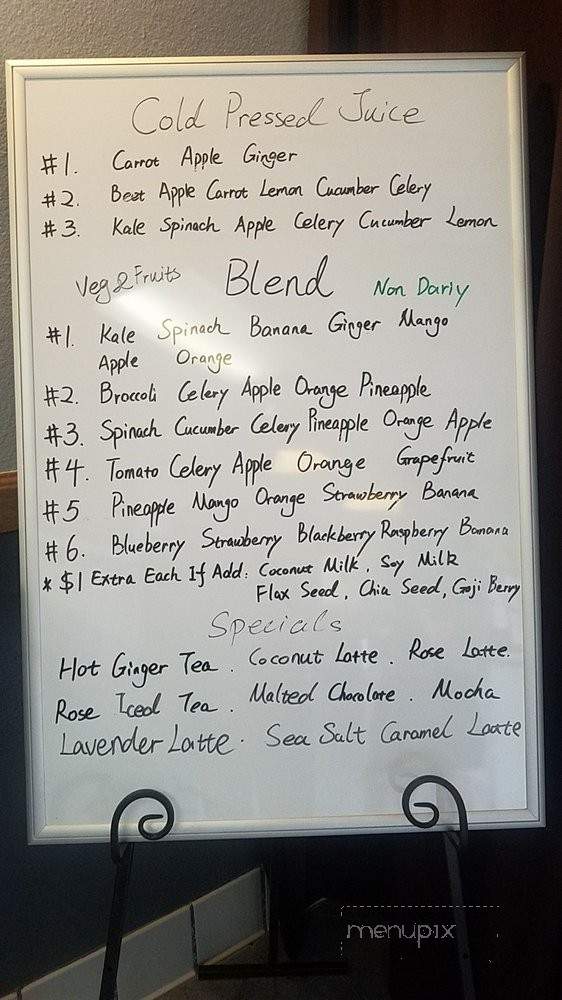 Cold Pressed Juice
#1. Carrot Apple Ginger
#2. Beet Apple Carrot Lemon Cucumber Celery
#3. Kale Spinach Apple Celery Cucumber Lemon
Veg & Fruits Blend Non Dariy
#1. Kale Spinach Banana Ginger Mango
Apple Orange
#2. Broccoli Celery Apple Orange Pineapple
#3. Spinach Cucumber Celery Pineapple Orange Apple
#4. Tomato Celery Apple Orange Grapefruit
#5 Pineapple Mango Orange Strawberry Banana
#6. Blueberry Strawberry Blackberry Raspberry Banana
* $1 Extra Each If Add: Coconut Milk, Soy Milk
Flax Seed, Chia Seed, Goji Berry
Specials
Hot Ginger Tea . Coconut Latte . Rose Latte.
Rose Iced Tea . Malted Chocolate . Mocha
Lavender Latte . Sea Salt Caramel Laate
menupix